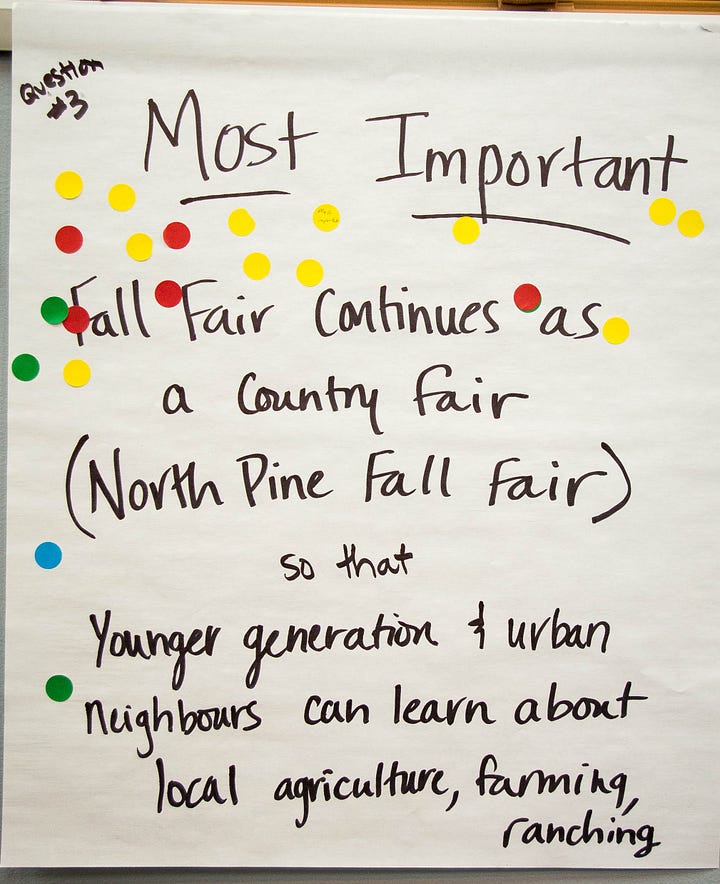 Question
#3
Most Important
Fall Fair Continues as
a Country Fair
(North Pine Fall Fair)
so that
Younger generation & urban
neighbours can learn about
local agriculture, farming,
ranching